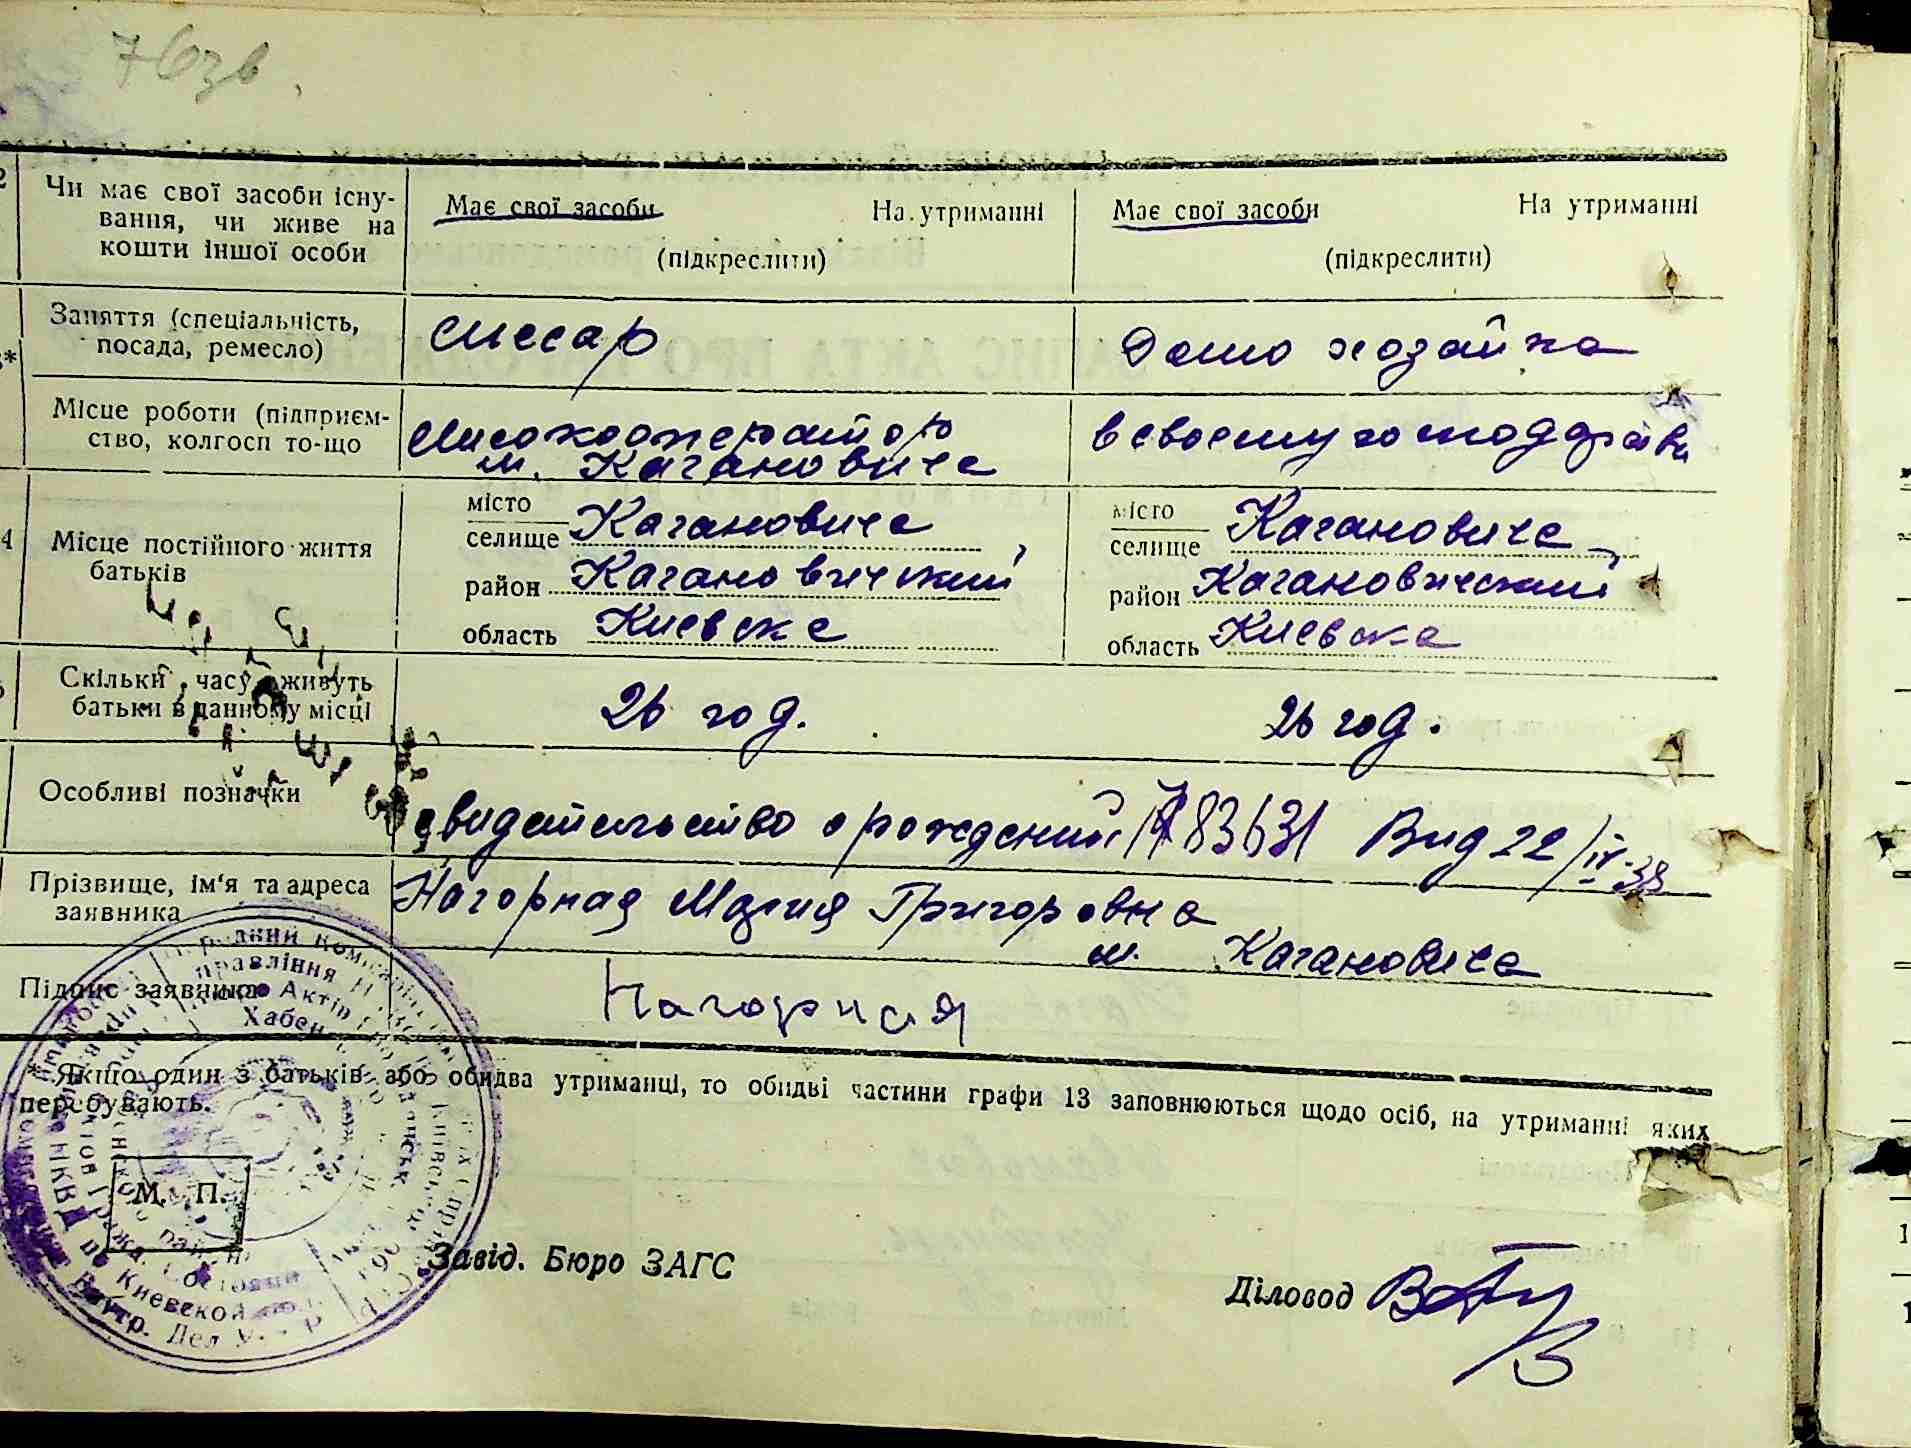 76зв.
Чи має свої засоби існу-
вання, чи живе на
кошти іншої особи
Має свої засоби На утриманні
(підкреслити)
Має свої засоби На утриманні
(підкреслити)
Заняття (спеціальність,
посада, ремесло)
слесар
Домохозайка
Місце роботи (підприєм-
ство, колгосп то-що
м. Кагановиче
в своему господарстві
4 Місце постійного життя
батьків
місто
селище Кагановиче,
район Кагановический
область Киевске
місто
селище Кагановиче,
район Кагановический
область Киевска
Скільки часу живуть
батьки в данному місці
26 год.
26 год.
Особливі позначки
свидетельство о рождений Вид 22/IV-38
Прізвище, ім'я та адреса
заявника
Нагорная Мария Григоровна
м. Кагановиче
Підпис заявника
Нагорная
* Якщо один з батьків або обидва утриманці, то обидві частини графи 13 заповнюються щодо осіб, на утриманні яких
перебувають.
М. П.
Завід. Бюро ЗАГС
Діловод